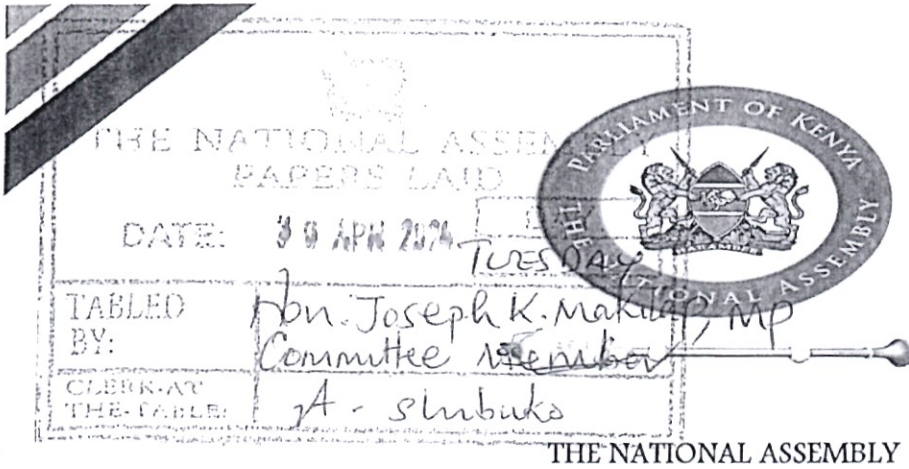 THE NATIONAL ASSEMBLY
PAPERS LAID
DATE: 30 APR 2024
TUESDAY
TABLED BY: Hon. Joseph K. Makilap, MP
Committee Member
CLERK-AT THE-TABLE: A. Shibuko
THE PARLIAMENT OF KENYA
NATIONAL ASSEMBLY
THE NATIONAL ASSEMBLY